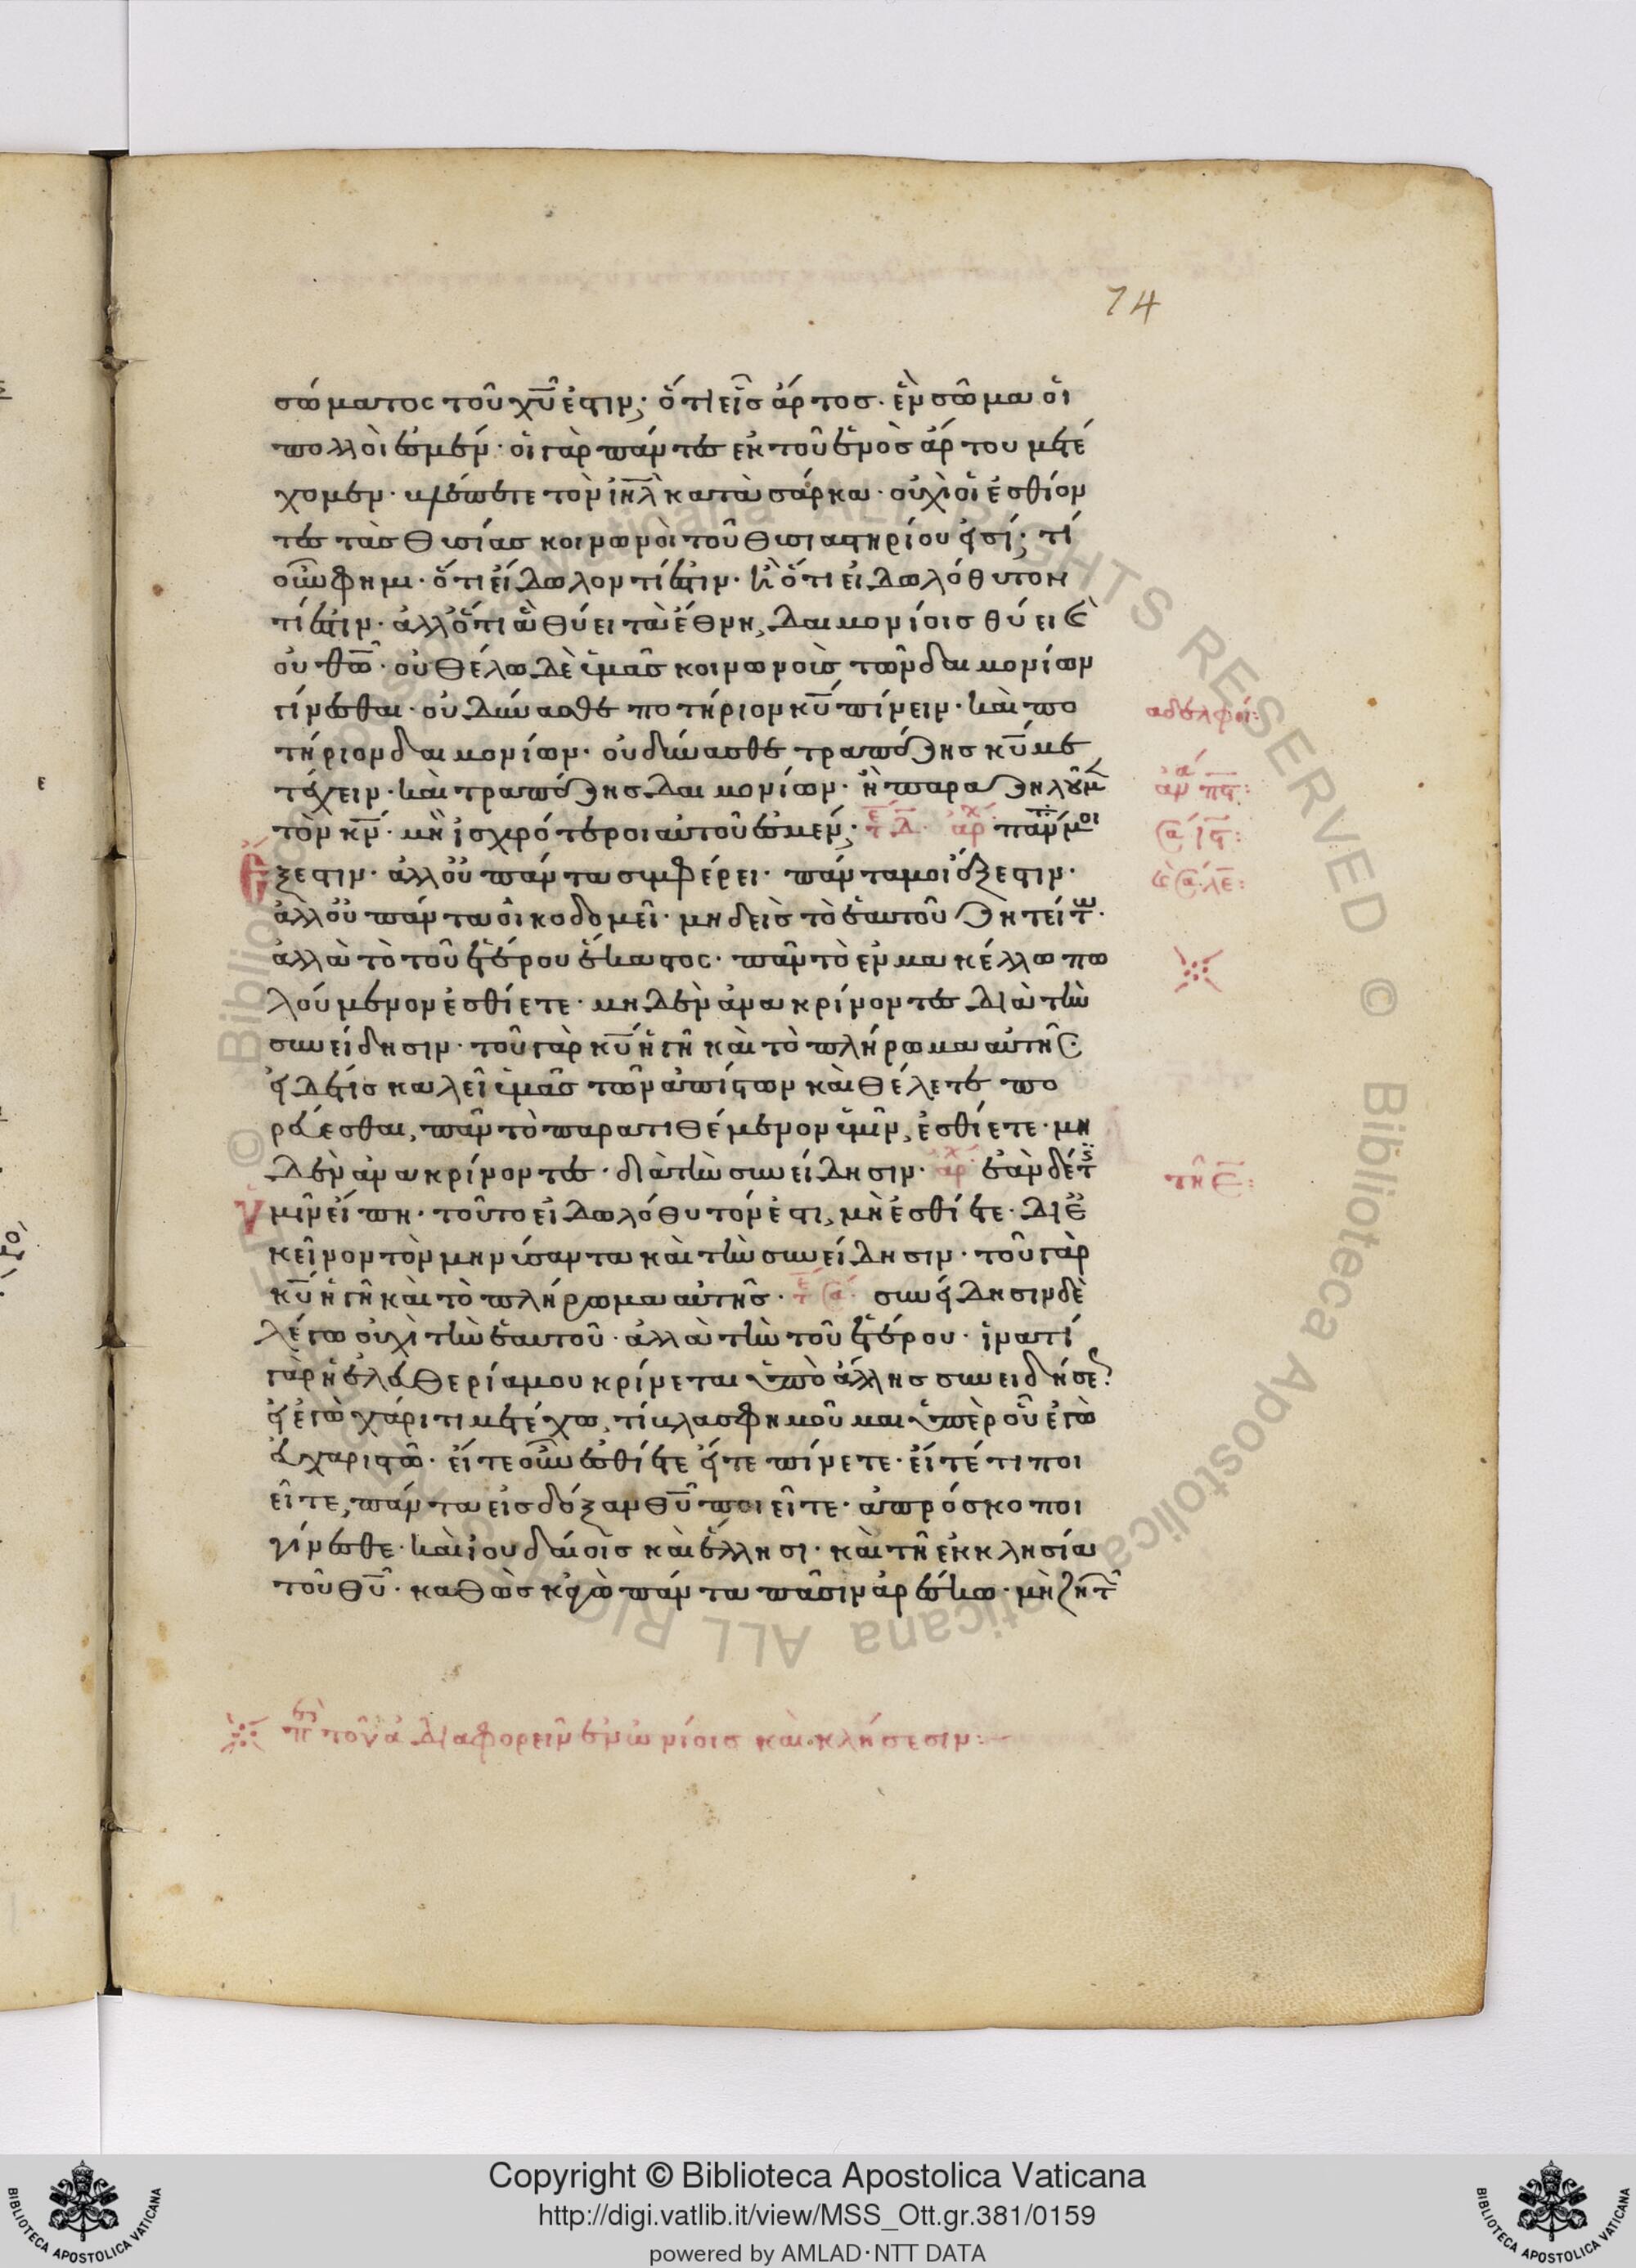 74
σώματος τοῦ χῦ ἐστιν; ὅτι εἷς ἄρτος· ἓν σῶμα οἱ
πολλοί ἐσμεν· οἱ γὰρ πάντες ἐκ τοῦ ἑνὸς ἄρτου μετέ
χομεν· βλέπετε τὸν ἰηλ κατὰ σάρκα· οὐχὶ οἱ ἐσθίον
τες τὰς θυσίας κοινωνοὶ τοῦ θυσιαστηρίου εἰσί; τί
οὖν φημι· ὅτι εἴδωλον τί ἐστιν· ἢ ὅτι εἰδωλόθυτον
τί ἐστιν· ἀλλ' ὅτι ἃ θύει τὰ ἔθνη, δαιμονίοις θύει κ
οὐ θω· οὐ θέλω δὲ ὑμᾶς κοινωνοὺς τῶν δαιμονίων
γίνεσθαι· οὐ δύνασθε ποτήριον κυ πίνειν· καὶ πο
τήριον δαιμονίων· οὐ δύνασθε τραπέζης κυ με
τέχειν· καὶ τραπέζης δαιμονίων· ἢ παραζηλοῦμ
τὸν κν· μὴ ἰσχρότεροι αὐτοῦ ἐσμεν; ἀρχ παντ μοι
ἔξεστιν· ἀλλ' οὐ πάντα συμφέρει· πάντα μοι ἔξεστιν·
ἀλλ' οὐ πάντα οἰκοδομεῖ· μηδεὶς τὸ ἑαυτοῦ ζητείτω·
ἀλλὰ τὸ τοῦ ἑτέρου ἕκαστος· πᾶν τὸ ἐν μακέλλω πω
λούμενον ἐσθίετε· μηδὲν ἀνακρίνοντες διὰ τὴν
συνείδησιν· τοῦ γὰρ κυ ἡ γῆ καὶ τὸ πλήρωμα αὐτῆς·
εἰ δέ τις καλεῖ ὑμᾶς τῶν ἀπίστων καὶ θέλετε πο
ρεύεσθαι, πᾶν τὸ παρατιθέμενον ὑμῖν, ἐσθίετε· μη
δὲν ἀνακρίνοντες· διὰ τὴν συνείδησιν· ἀρχ ἐὰν δέ τις
ὑμῖν εἴπη· τοῦτο εἰδωλόθυτόν ἐστι, μὴ ἐσθίετε· δι' ἐ
κεῖνον τὸν μηνύσαντα καὶ τὴν συνείδησιν· τοῦ γὰρ
κυ ἡ γῆ καὶ τὸ πλήρωμα αὐτῆς· συνείδησιν δὲ
λέγω οὐχὶ τὴν ἑαυτοῦ· ἀλλὰ τὴν τοῦ ἑτέρου· ἱνατί
γὰρ ἡ ἐλευθερία μου κρίνεται ὑπὸ ἄλλης συνειδήσε
εἰ ἐγὼ χάριτι μετέχω, τί βλασφημοῦμαι ὑπὲρ οὗ ἐγὼ
εὐχαριστῶ· εἴτε οὖν ἐσθίετε εἴτε πίνετε· εἴτέ τι ποι
εῖτε, πάντα εἰς δόξαν θυ ποιεῖτε· ἀπρόσκοποι
γίνεσθε· καὶ ἰουδαίοις καὶ ἕλλησι· καὶ τῆ ἐκκλησία
τοῦ θυ· καθὼς κἀγὼ πάντα πᾶσιν ἀρέσκω· μὴ ζητ
ἀδελφοί:
περὶ τοῦ διαφορεῖν ἐνωνίοις καὶ κλήσεσιν:
Copyright © Biblioteca Apostolica Vaticana
http://digi.vatlib.it/view/MSS_Ott.gr.381/0159
powered by AMLAD·NTT DATA
BIBLIOTECA APOSTOLICA VATICANA
BIBLIOTECA APOSTOLICA VATICANA